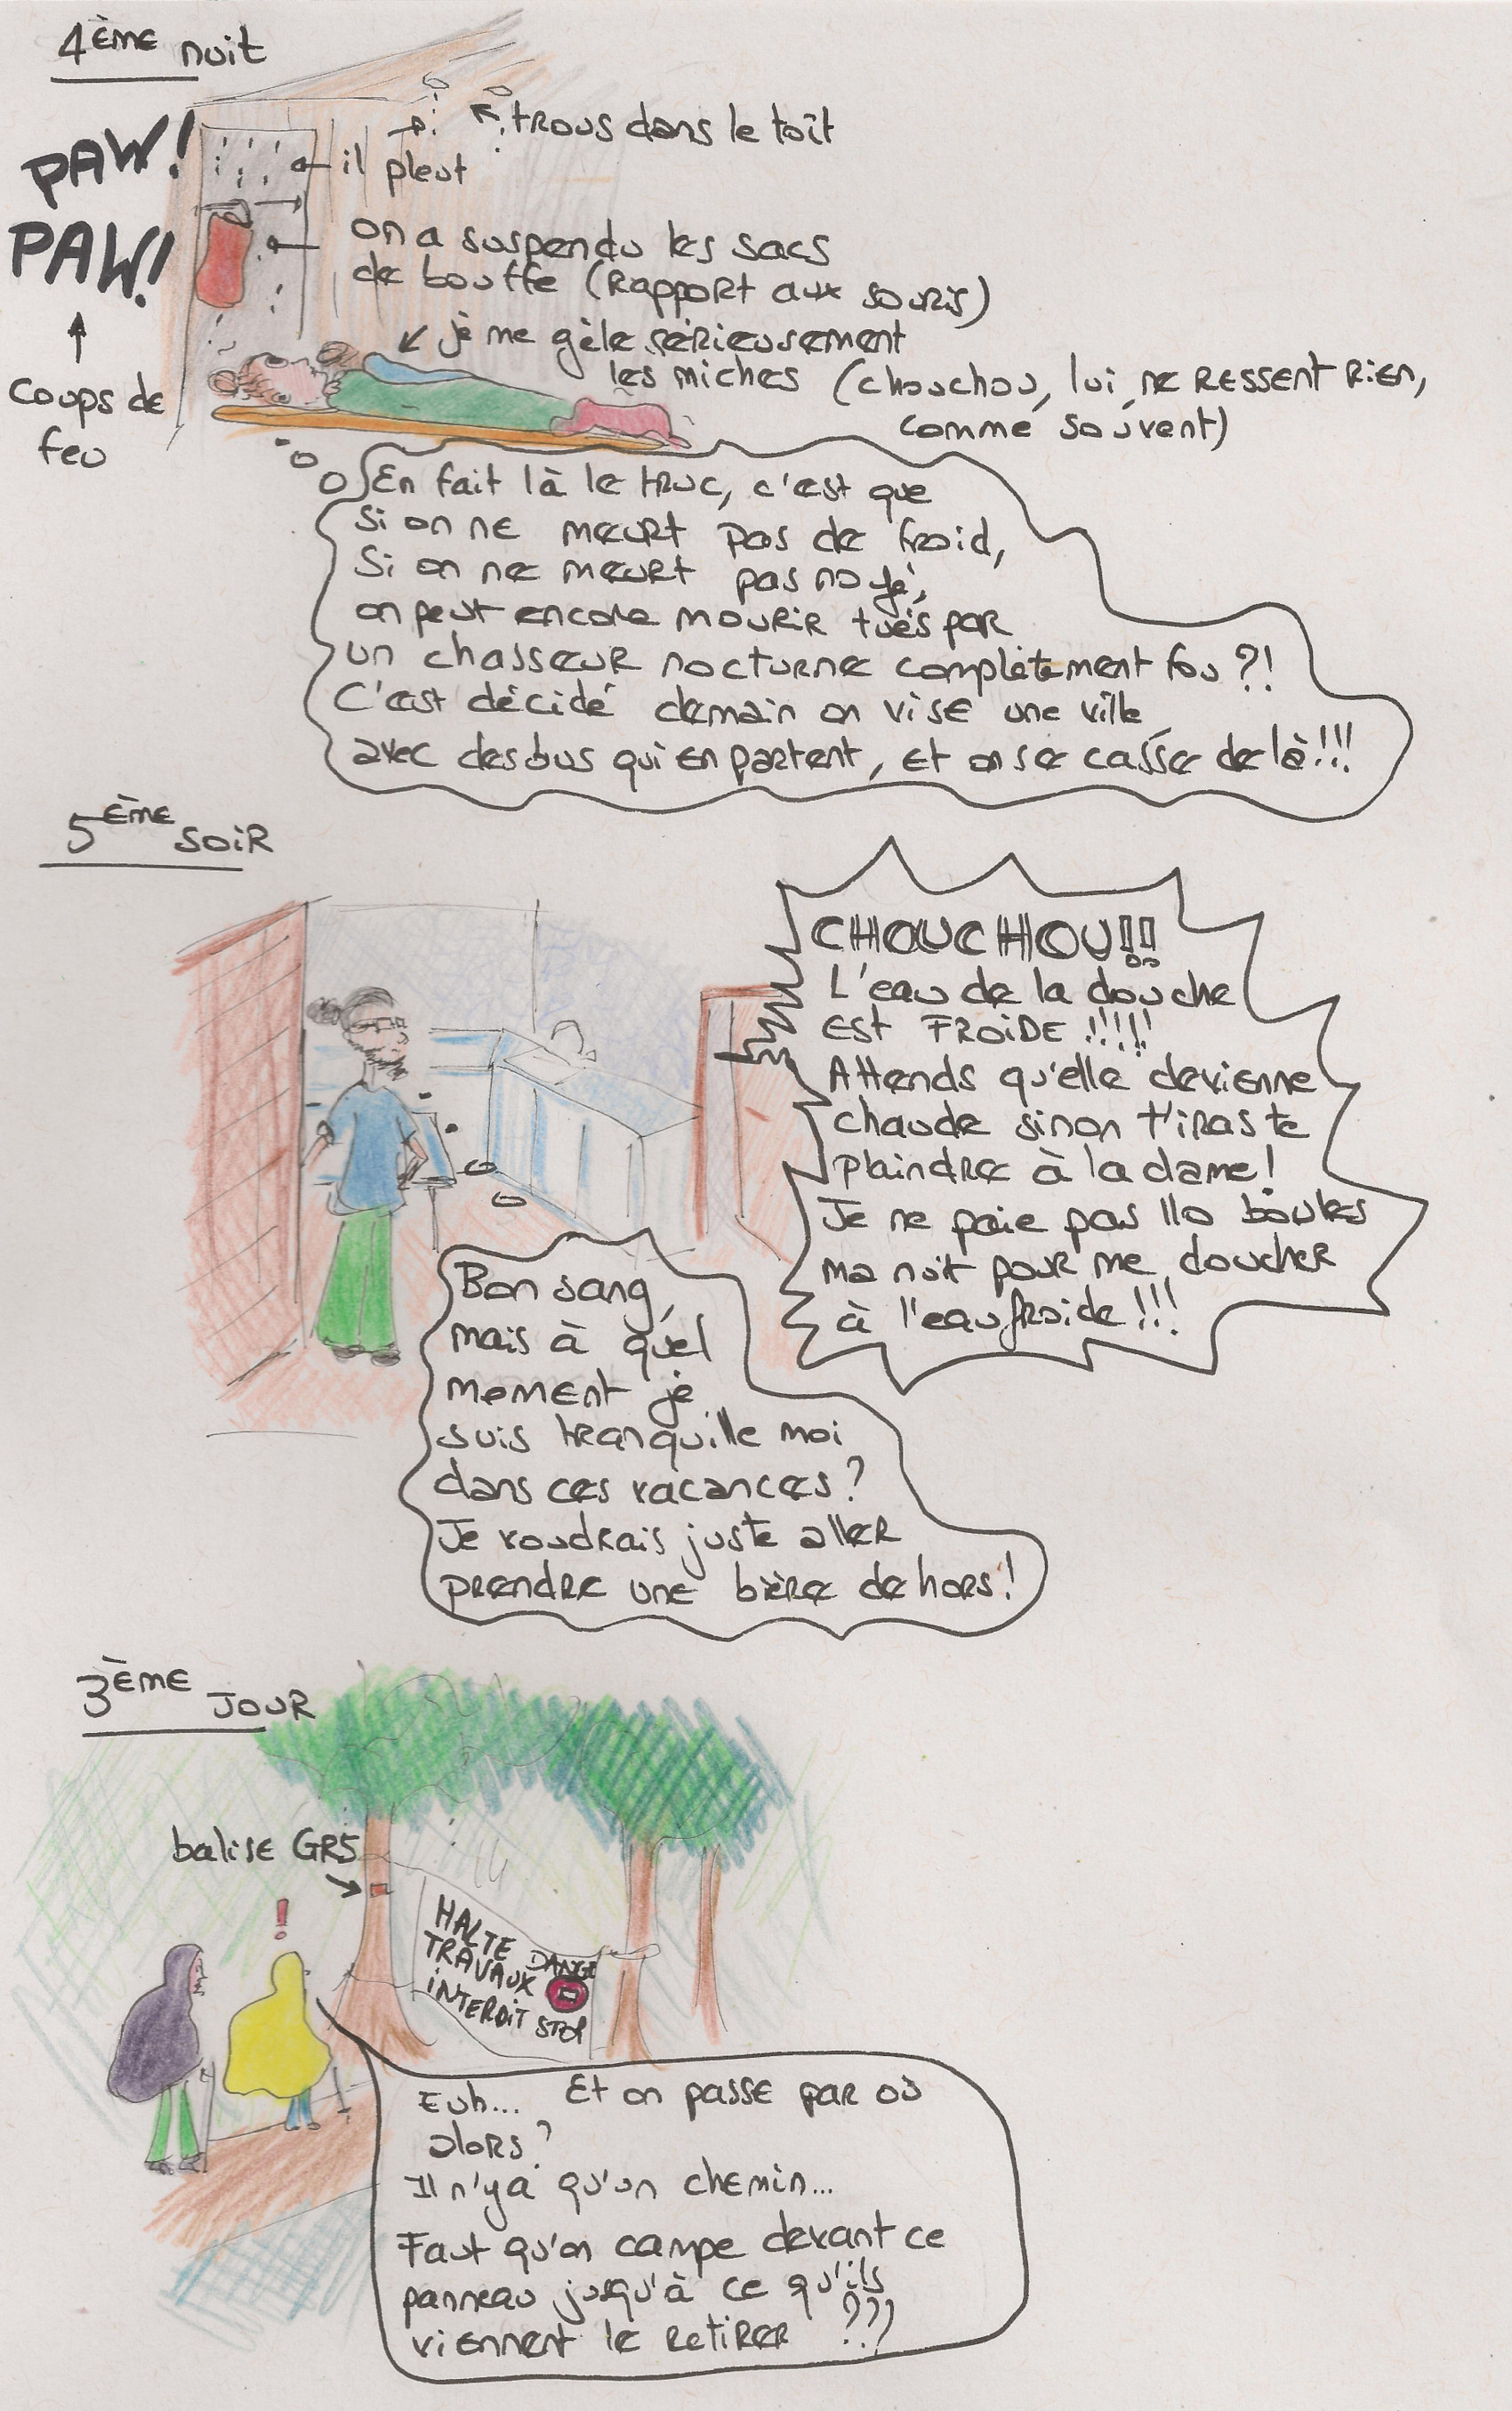 4ème nuit
PAW!
PAW!
coups de
feu
trous dans le toît
il pleut
on a suspendu les sacs
de bouffe (rapport aux souris)
je me gèle sérieusement
les miches (chouchou, lui, ne ressent rien,
comme souvent)
En fait là le truc, c'est que
si on ne meurt pas de froid,
si on ne meurt pas noyé,
on peut encore mourir tués par
un chasseur nocturne complètement fou ?!
C'est décidé demain on vise une ville
avec des bus qui en partent, et on se casse de là !!!
5ème soir
CHOUCHOU!!
L'eau de la douche
est FROIDE !!!!!
Attends qu'elle devienne
chaude sinon t'iras te
plaindre à la dame !
Je ne paie pas 110 boules
ma nuit pour me doucher
à l'eau froide !!!
Bon sang,
mais à quel
moment je
suis tranquille moi
dans ces vacances ?
Je voudrais juste aller
prendre une bière dehors !
3ème jour
balise GR5
!
HALTE
TRAVAUX
INTERDIT
DANGE
STOP
Euh... Et on passe par où
alors ?
Il n'y a qu'un chemin...
Faut qu'on campe devant ce
panneau jusqu'à ce qu'ils
viennent le retirer ???